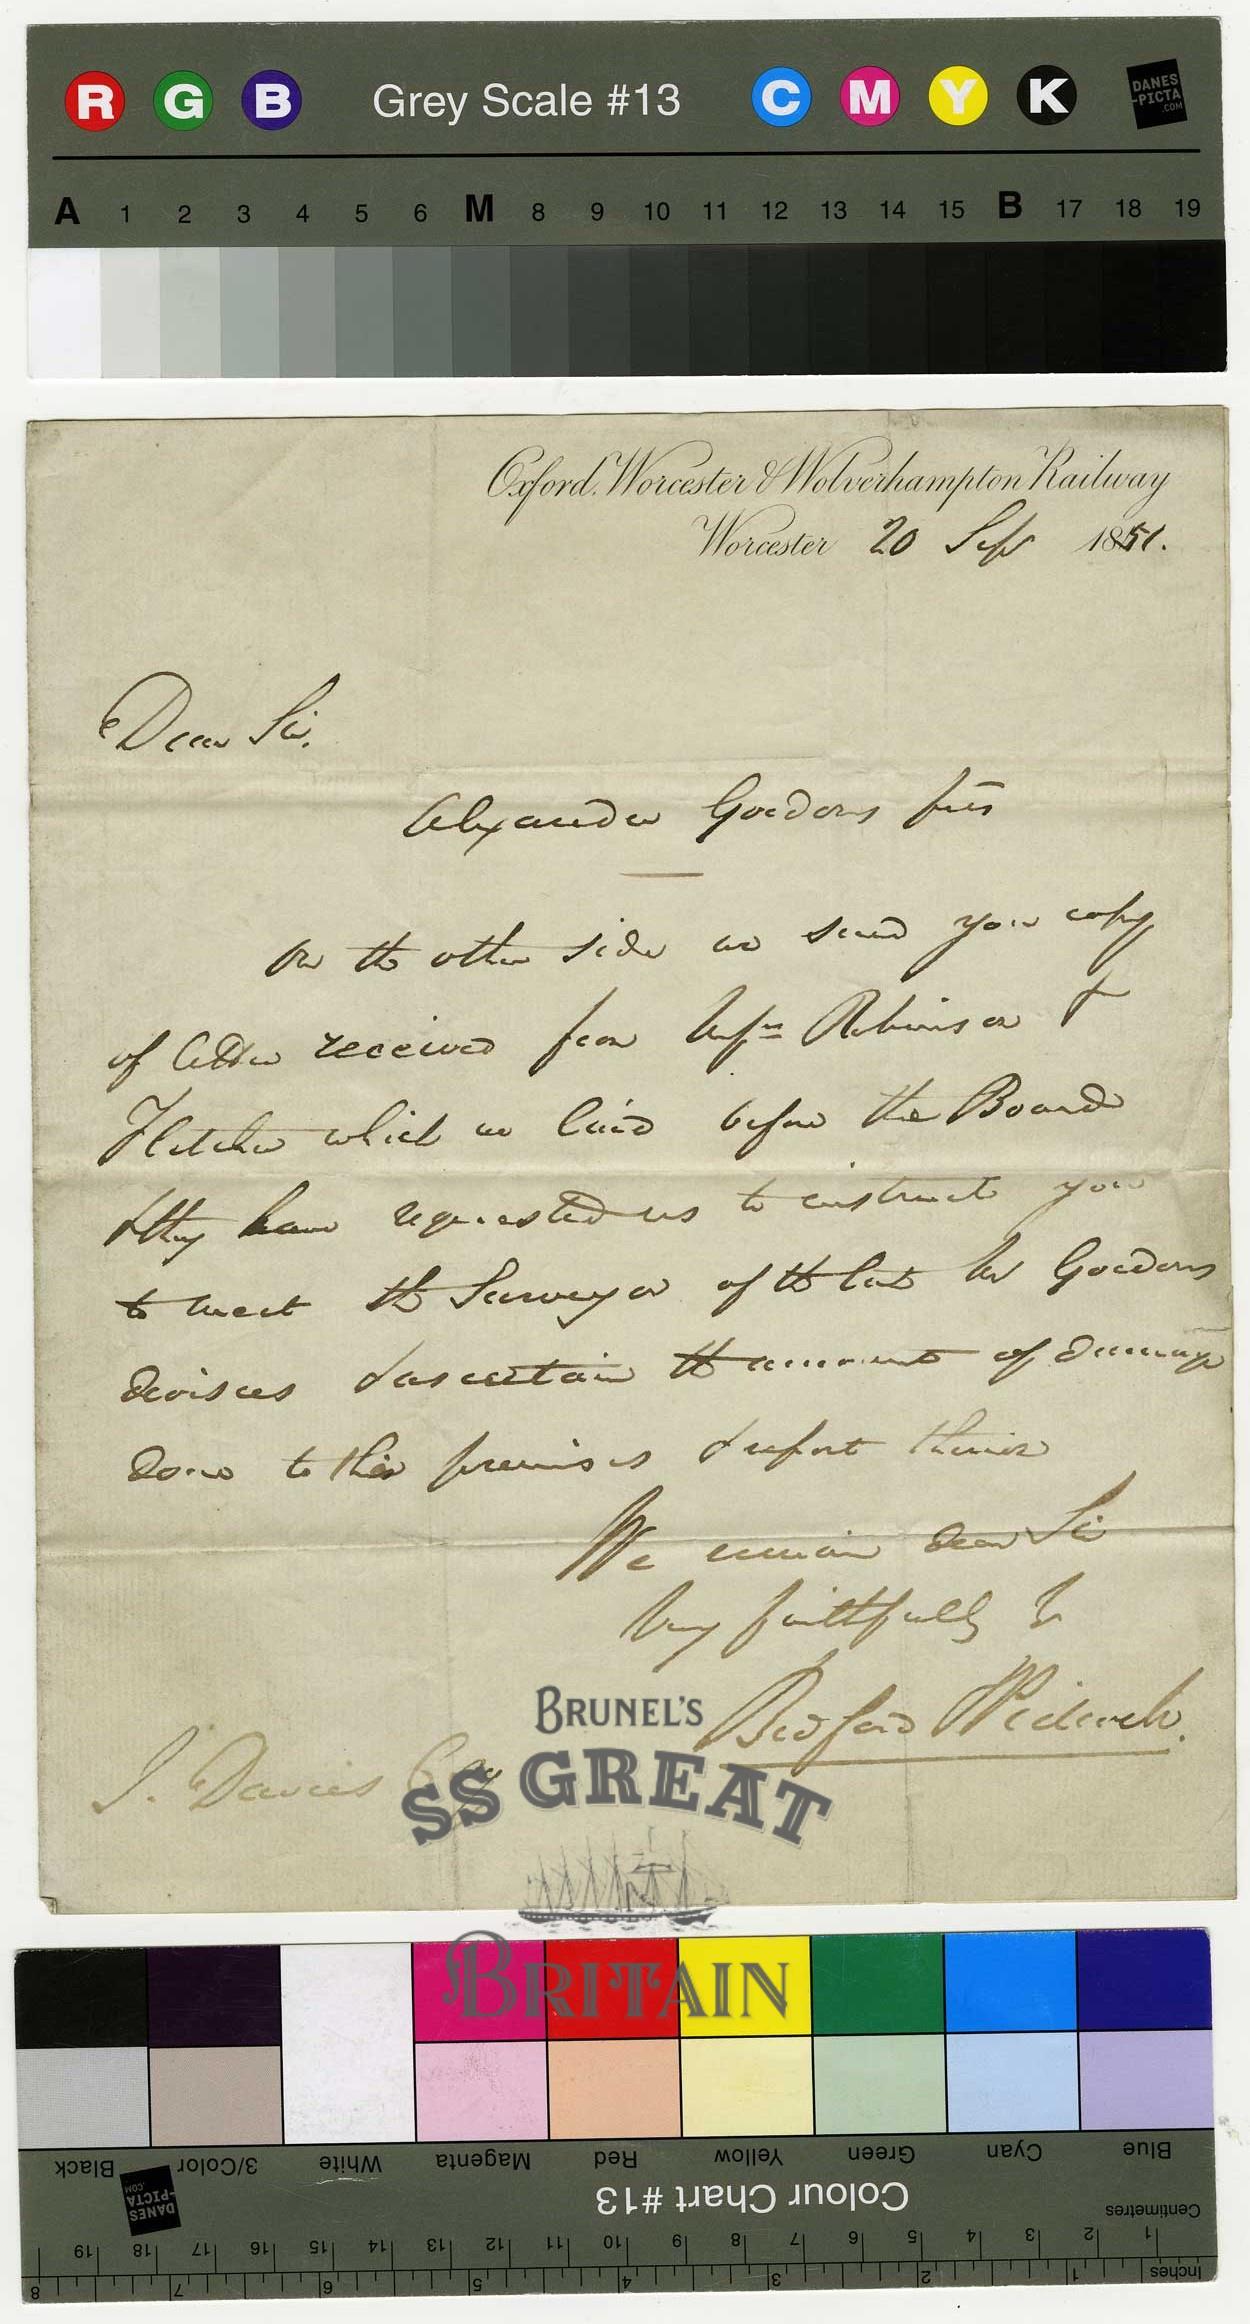 R G B Grey Scale #13 C M Y K DANES-PICTA.COM
A 1 2 3 4 5 6 M 8 9 10 11 12 13 14 15 B 17 18 19
Oxford, Worcester & Wolverhampton Railway
Worcester 20 Sept 1851.
Dear Sir,
Alexander Gordons
On the other side we send you copy
of letter received from Messrs Robinson &
Fletcher which we laid before the Board
& they have requested us to instruct you
to meet the Surveyor of the late Mr Gordons
devisees & ascertain the amount of damage
done to their premises & report thereon
We remain dear Sir
Very faithfully Yrs
Bedford & Pidcock.
J. Davies Esq
BRUNEL'S
SS GREAT
BRITAIN
Black 3/Color White Magenta Red Yellow Green Cyan Blue
DANES-PICTA.COM Colour Chart #13 Centimetres
19 18 17 16 15 14 13 12 11 10 9 8 7 6 5 4 3 2 1
8 7 6 5 4 3 2 1 Inches